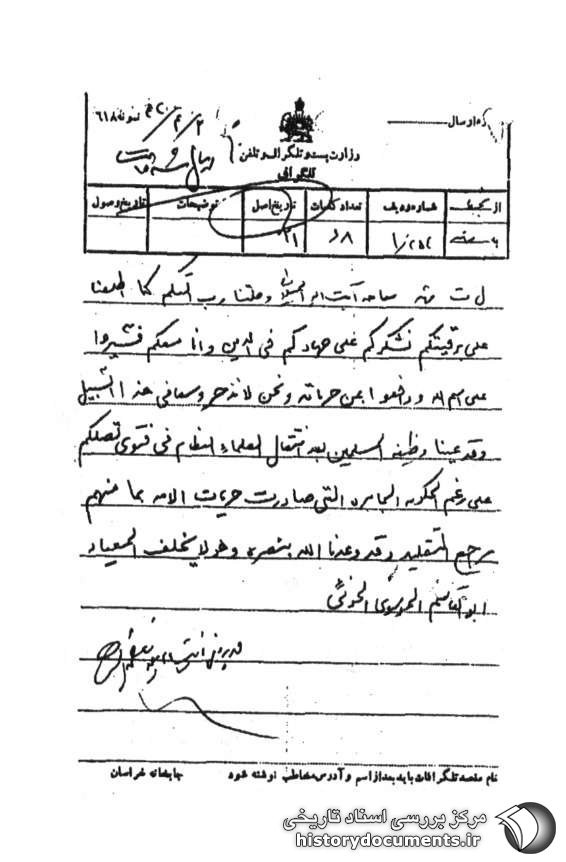 نمونه ۶۱۸
۲ / ۴ / ۲۰
وزارت پست و تلگراف و تلفن
تلگراف
از نجف
شماره ردیف
تعداد کلمات
تاریخ اصل
توضیحات
تاریخ وصول
۸۵
۲۱
سماحه آیت الله وصلتنا رب السلام کما اطلعنا
علی برقیتکم نشکرکم علی جهادکم فی الدین وانا معکم فسیروا
علی اسم الله ودافعوا عن حرماته ونحن لا ندخر وسعا فی هذا السبیل
وقد عینا وظیفه المسلمین بعد اعتقال العلماء العظام فی فتوی تصلکم
علی رغم الحکومه الجائره التی صادرت حریات الامه بما فیهم
مراجع التقلید وقد وعدنا الله بنصره وهو لا یخلف المیعاد
ابوالقاسم الموسوی الخوئی
نام مقصد تلگرافات باید بعد از اسم و آدرس مخاطب نوشته شود
چاپخانه خراسان
مرکز بررسی اسناد تاریخی
historydocuments.ir